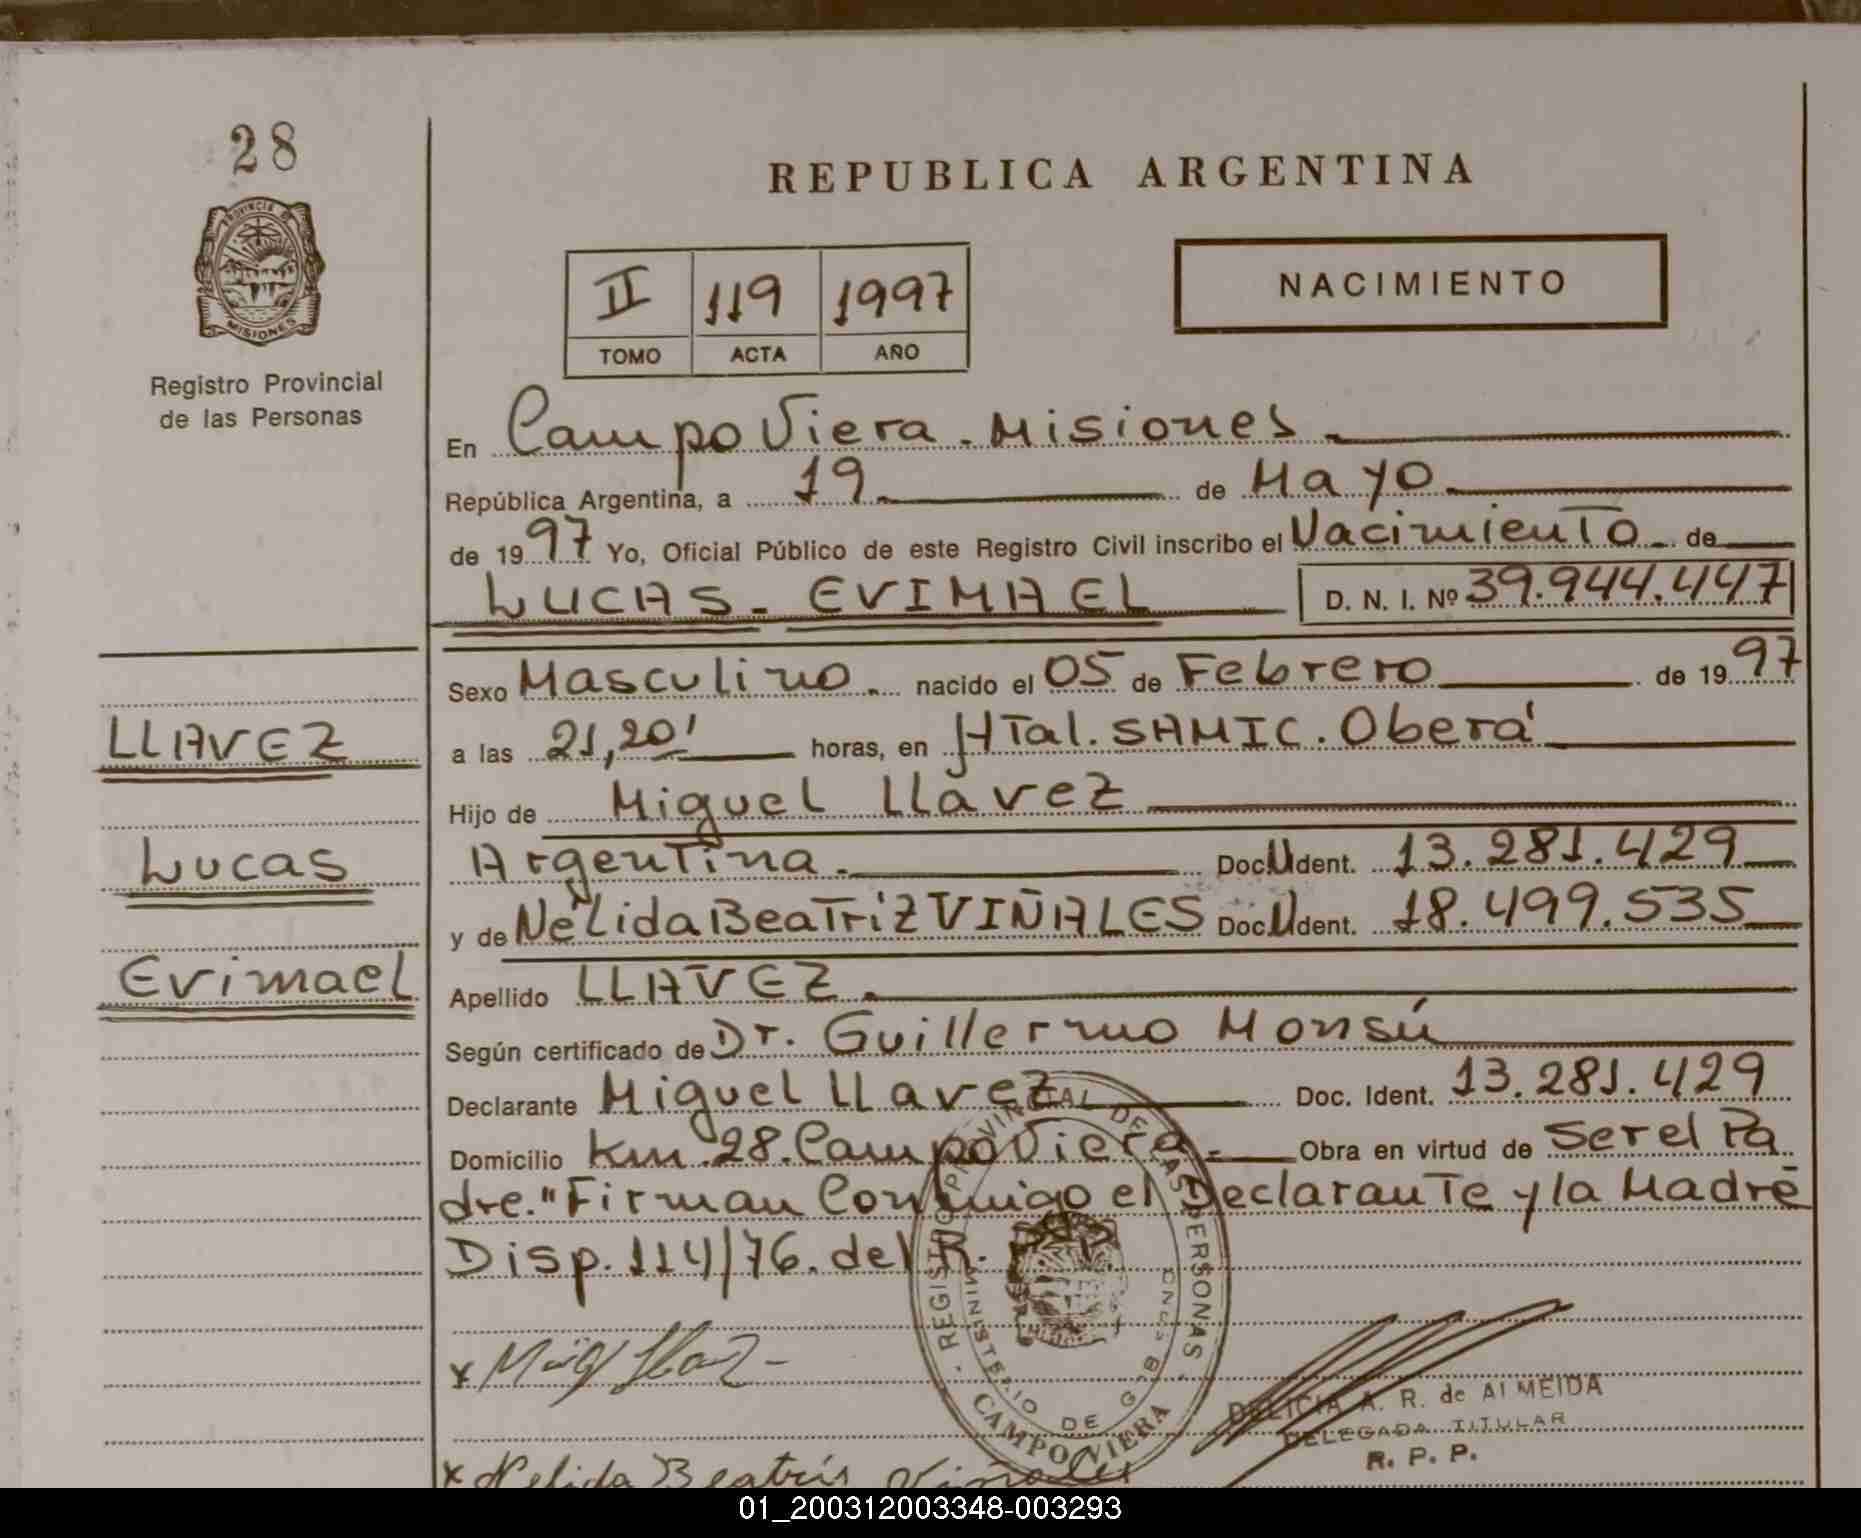 28
PROVINCIA DE
MISIONES
Registro Provincial
de las Personas
REPUBLICA ARGENTINA
NACIMIENTO
II 119 1997
TOMO ACTA AÑO
En Campo Viera. Misiones
República Argentina, a 19 de Mayo
de 1997 Yo, Oficial Público de este Registro Civil inscribo el Nacimiento de
LUCAS - EVIMAEL D. N. I. Nº 39.944.447
Sexo Masculino. nacido el 05 de Febrero de 1997
LLAVEZ
a las 21,20' horas, en HTal. SAMIC. Oberá
Hijo de Miguel LLavez
Lucas
Argentina. Doc. U Ident. 13.281.429
y de Nélida Beatriz VIÑALES Doc. U Ident. 18.499.535
Evimael
Apellido LLAVEZ.
Según certificado de Dr. Guillermo Monsú
Declarante Miguel LLavez Doc. Ident. 13.281.429
Domicilio Km. 28. Campo Viera. Obra en virtud de Ser el Pa
dre." Firman Conmigo el Declarante y la Madre
Disp. 114/76. del R.
REGISTRO PROVINCIAL DE LAS PERSONAS
MINISTERIO DE GOB
CAMPO VIERA
DELICIA A. R. de ALMEIDA
DELEGADA TITULAR
R. P. P.
x Nelida Beatris Viñales
01_200312003348-003293